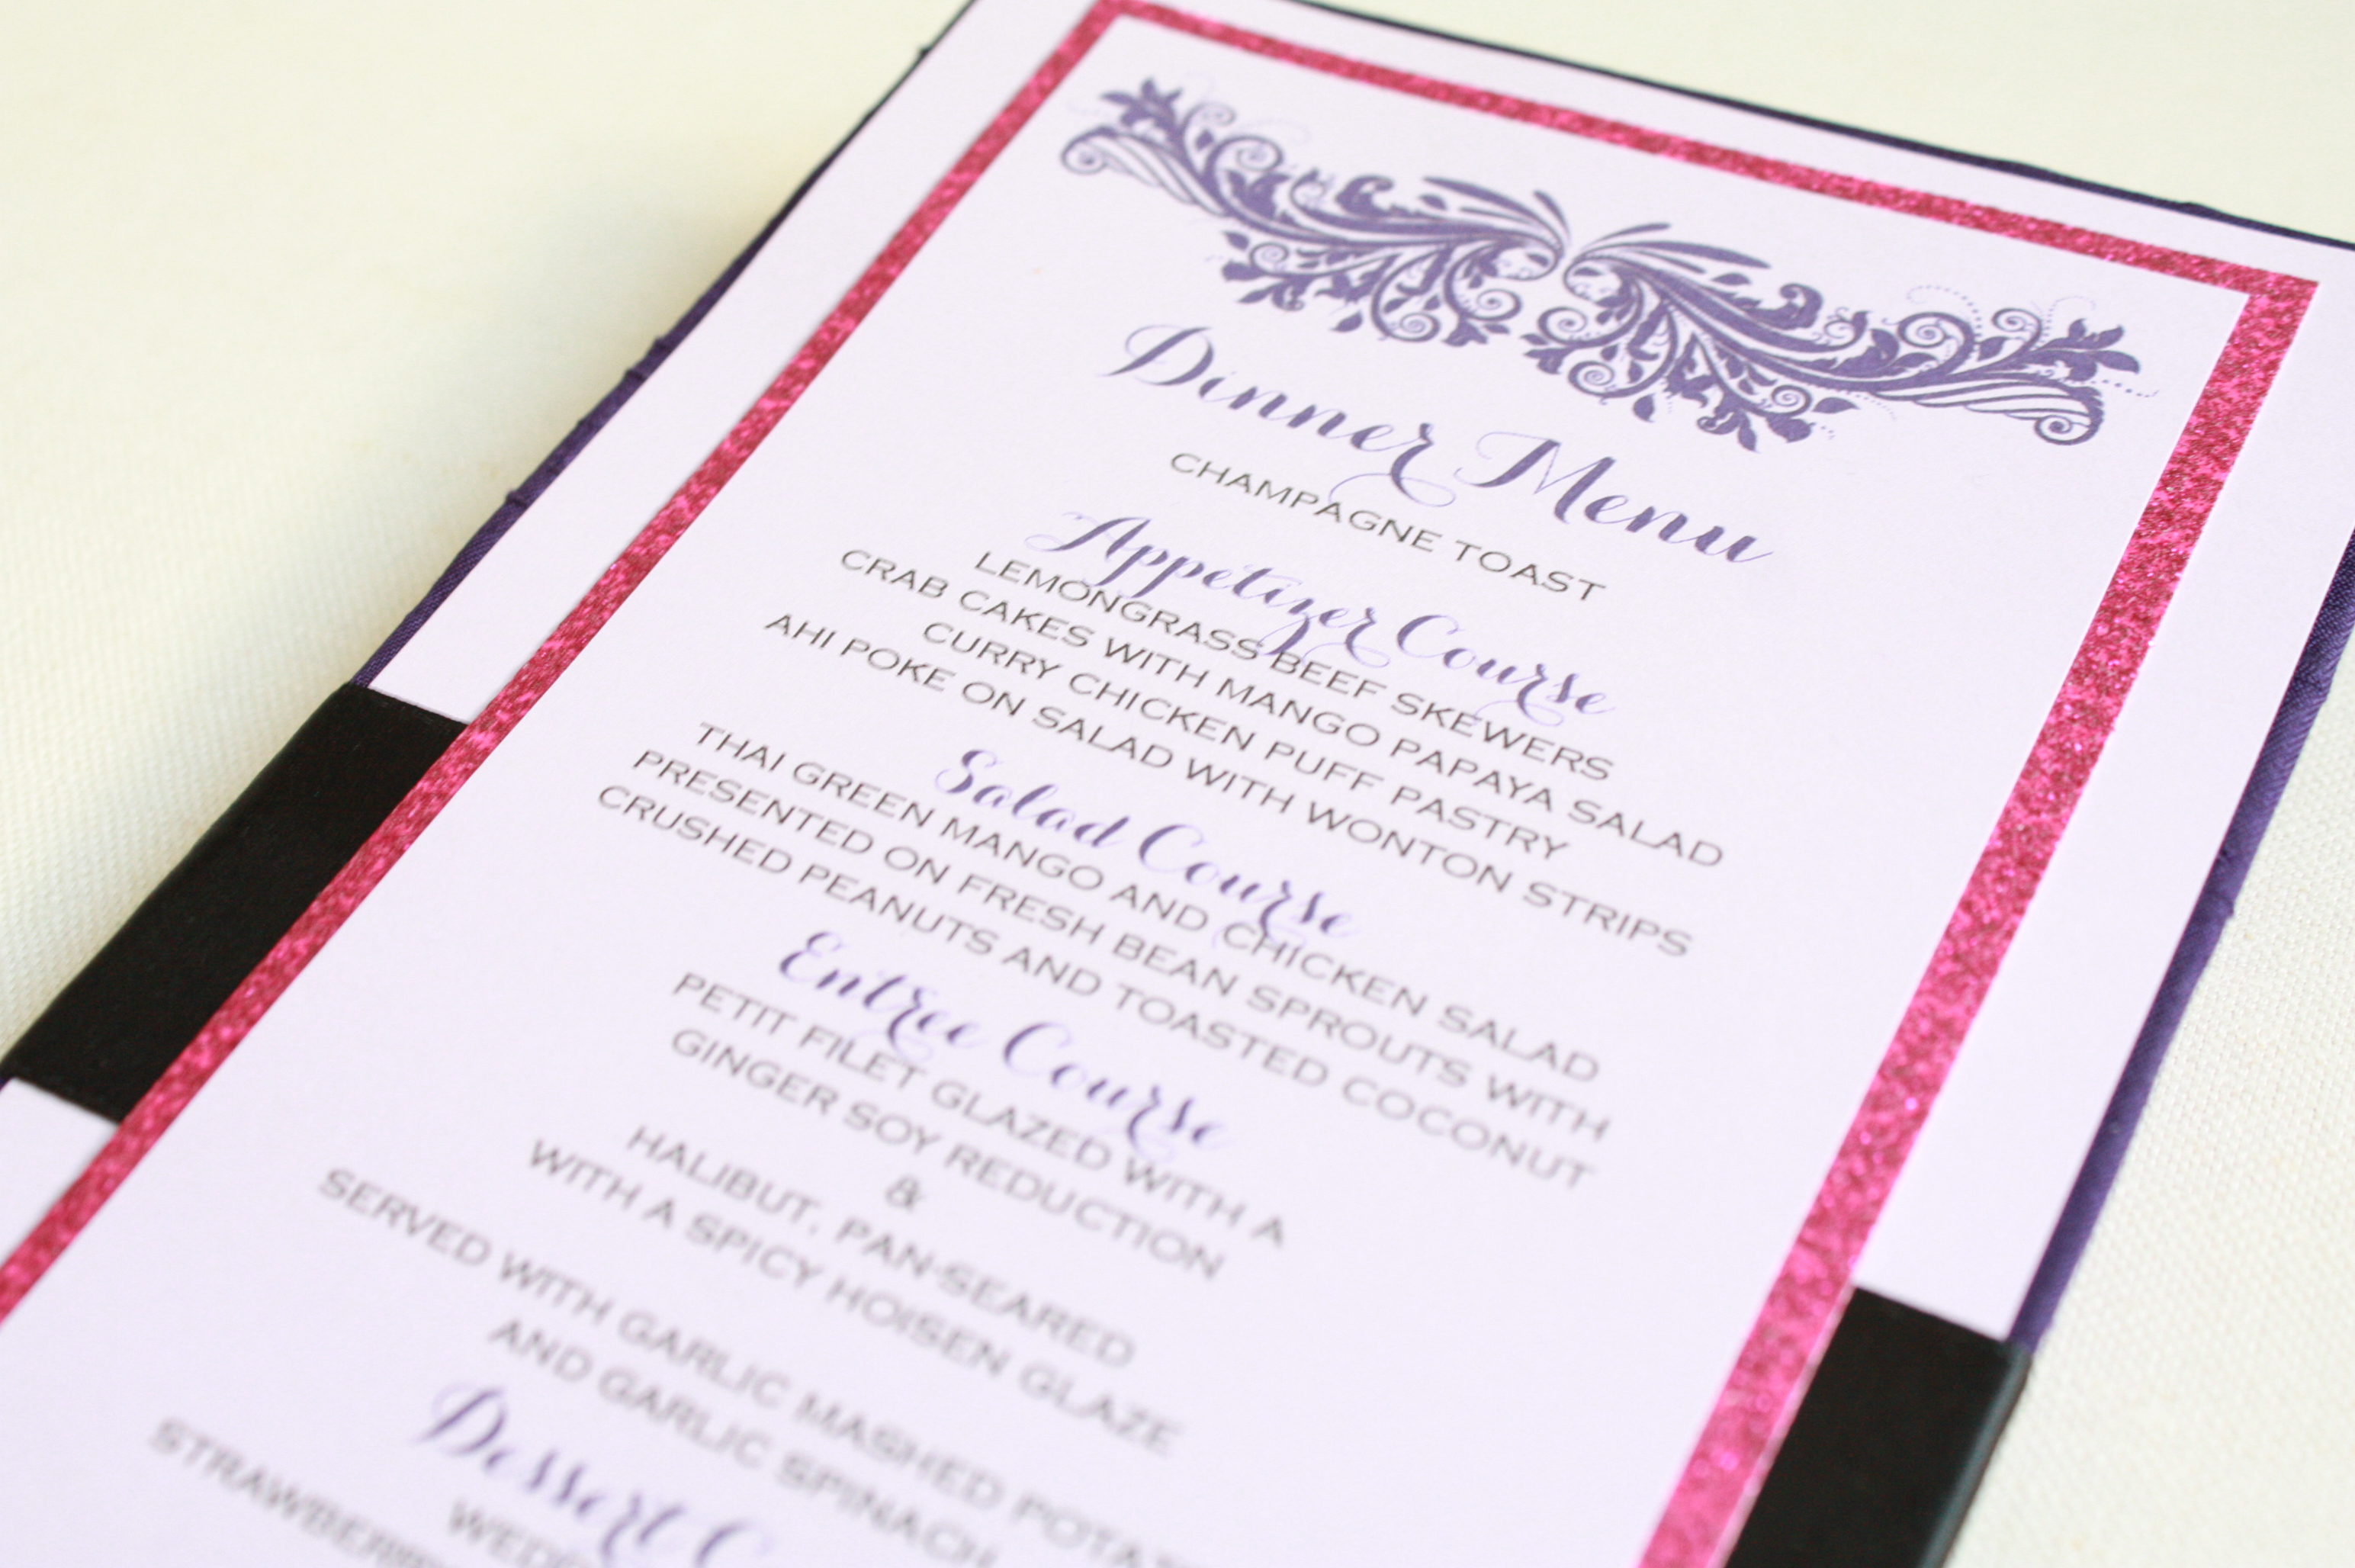 Dinner Menu
CHAMPAGNE TOAST
Appetizer Course
LEMONGRASS BEEF SKEWERS
CRAB CAKES WITH MANGO PAPAYA SALAD
CURRY CHICKEN PUFF PASTRY
AHI POKE ON SALAD WITH WONTON STRIPS
Salad Course
THAI GREEN MANGO AND CHICKEN SALAD
PRESENTED ON FRESH BEAN SPROUTS WITH
CRUSHED PEANUTS AND TOASTED COCONUT
Entree Course
PETIT FILET GLAZED WITH A
GINGER SOY REDUCTION
&
HALIBUT, PAN-SEARED
WITH A SPICY HOISEN GLAZE
SERVED WITH GARLIC MASHED
AND GARLIC SPINACH
Dessert